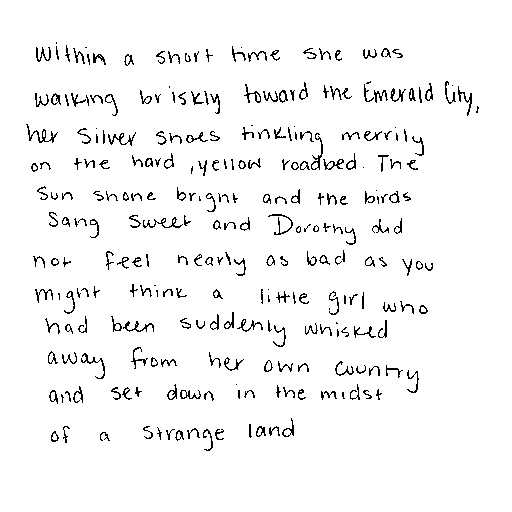 Within a short time she was
walking briskly toward the Emerald City,
her Silver Shoes tinkling merrily
on the hard, yellow roadbed. The
Sun shone bright and the birds
Sang Sweet and Dorothy did
not feel nearly as bad as you
might think a little girl who
had been suddenly whisked
away from her own country
and set down in the midst
of a strange land